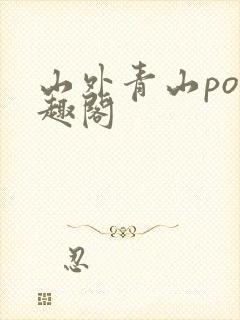 山外青山po
趣阁
忍